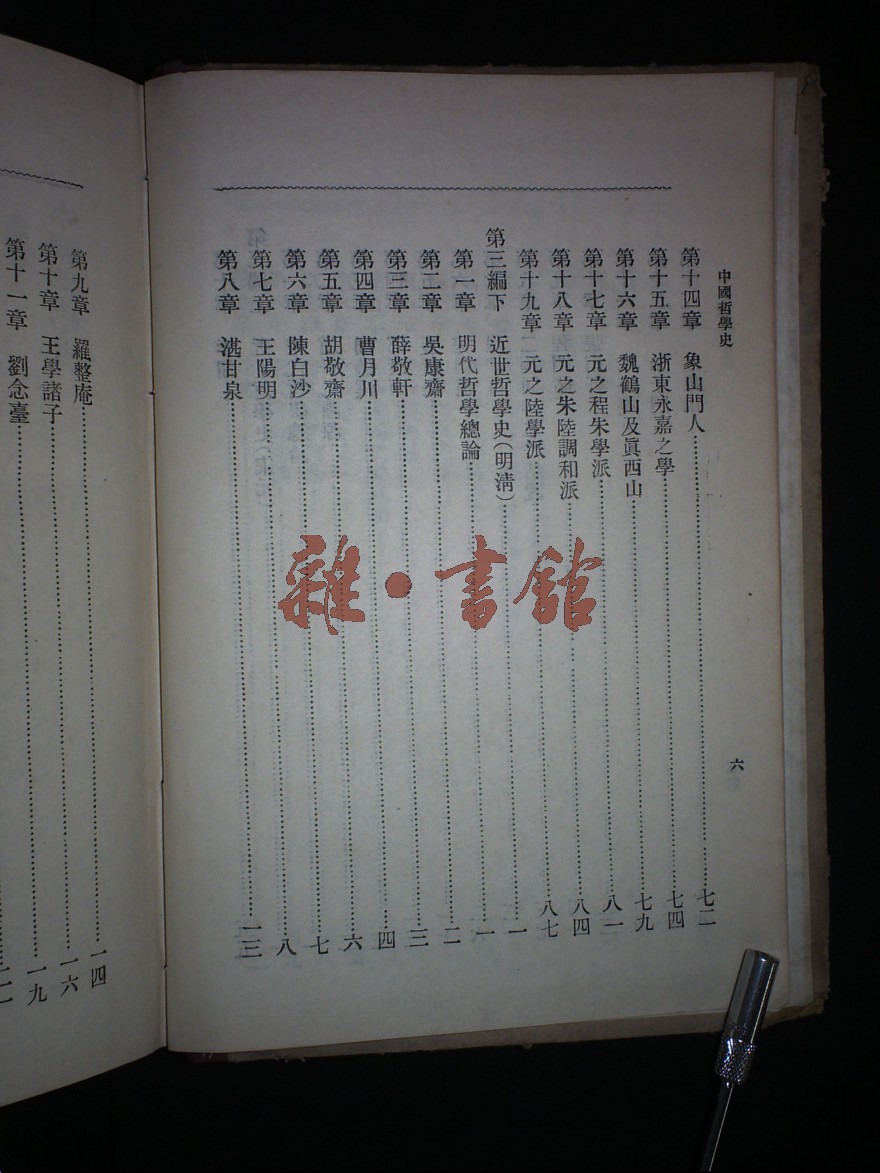 中國哲學史
六
第十四章　象山門人⋯⋯七二
第十五章　浙東永嘉之學⋯⋯七四
第十六章　魏鶴山及眞西山⋯⋯七九
第十七章　元之程朱學派⋯⋯八一
第十八章　元之朱陸調和派⋯⋯八四
第十九章　元之陸學派⋯⋯八七
第三編下　近世哲學史(明淸)⋯⋯一
第一章　明代哲學總論⋯⋯一
第二章　吳康齋⋯⋯二
第三章　薛敬軒⋯⋯三
第四章　曹月川⋯⋯四
第五章　胡敬齋⋯⋯六
第六章　陳白沙⋯⋯七
第七章　王陽明⋯⋯八
第八章　湛甘泉⋯⋯一三
第九章　羅整庵⋯⋯一四
第十章　王學諸子⋯⋯一六
第十一章　劉念臺⋯⋯一九
雜·書館